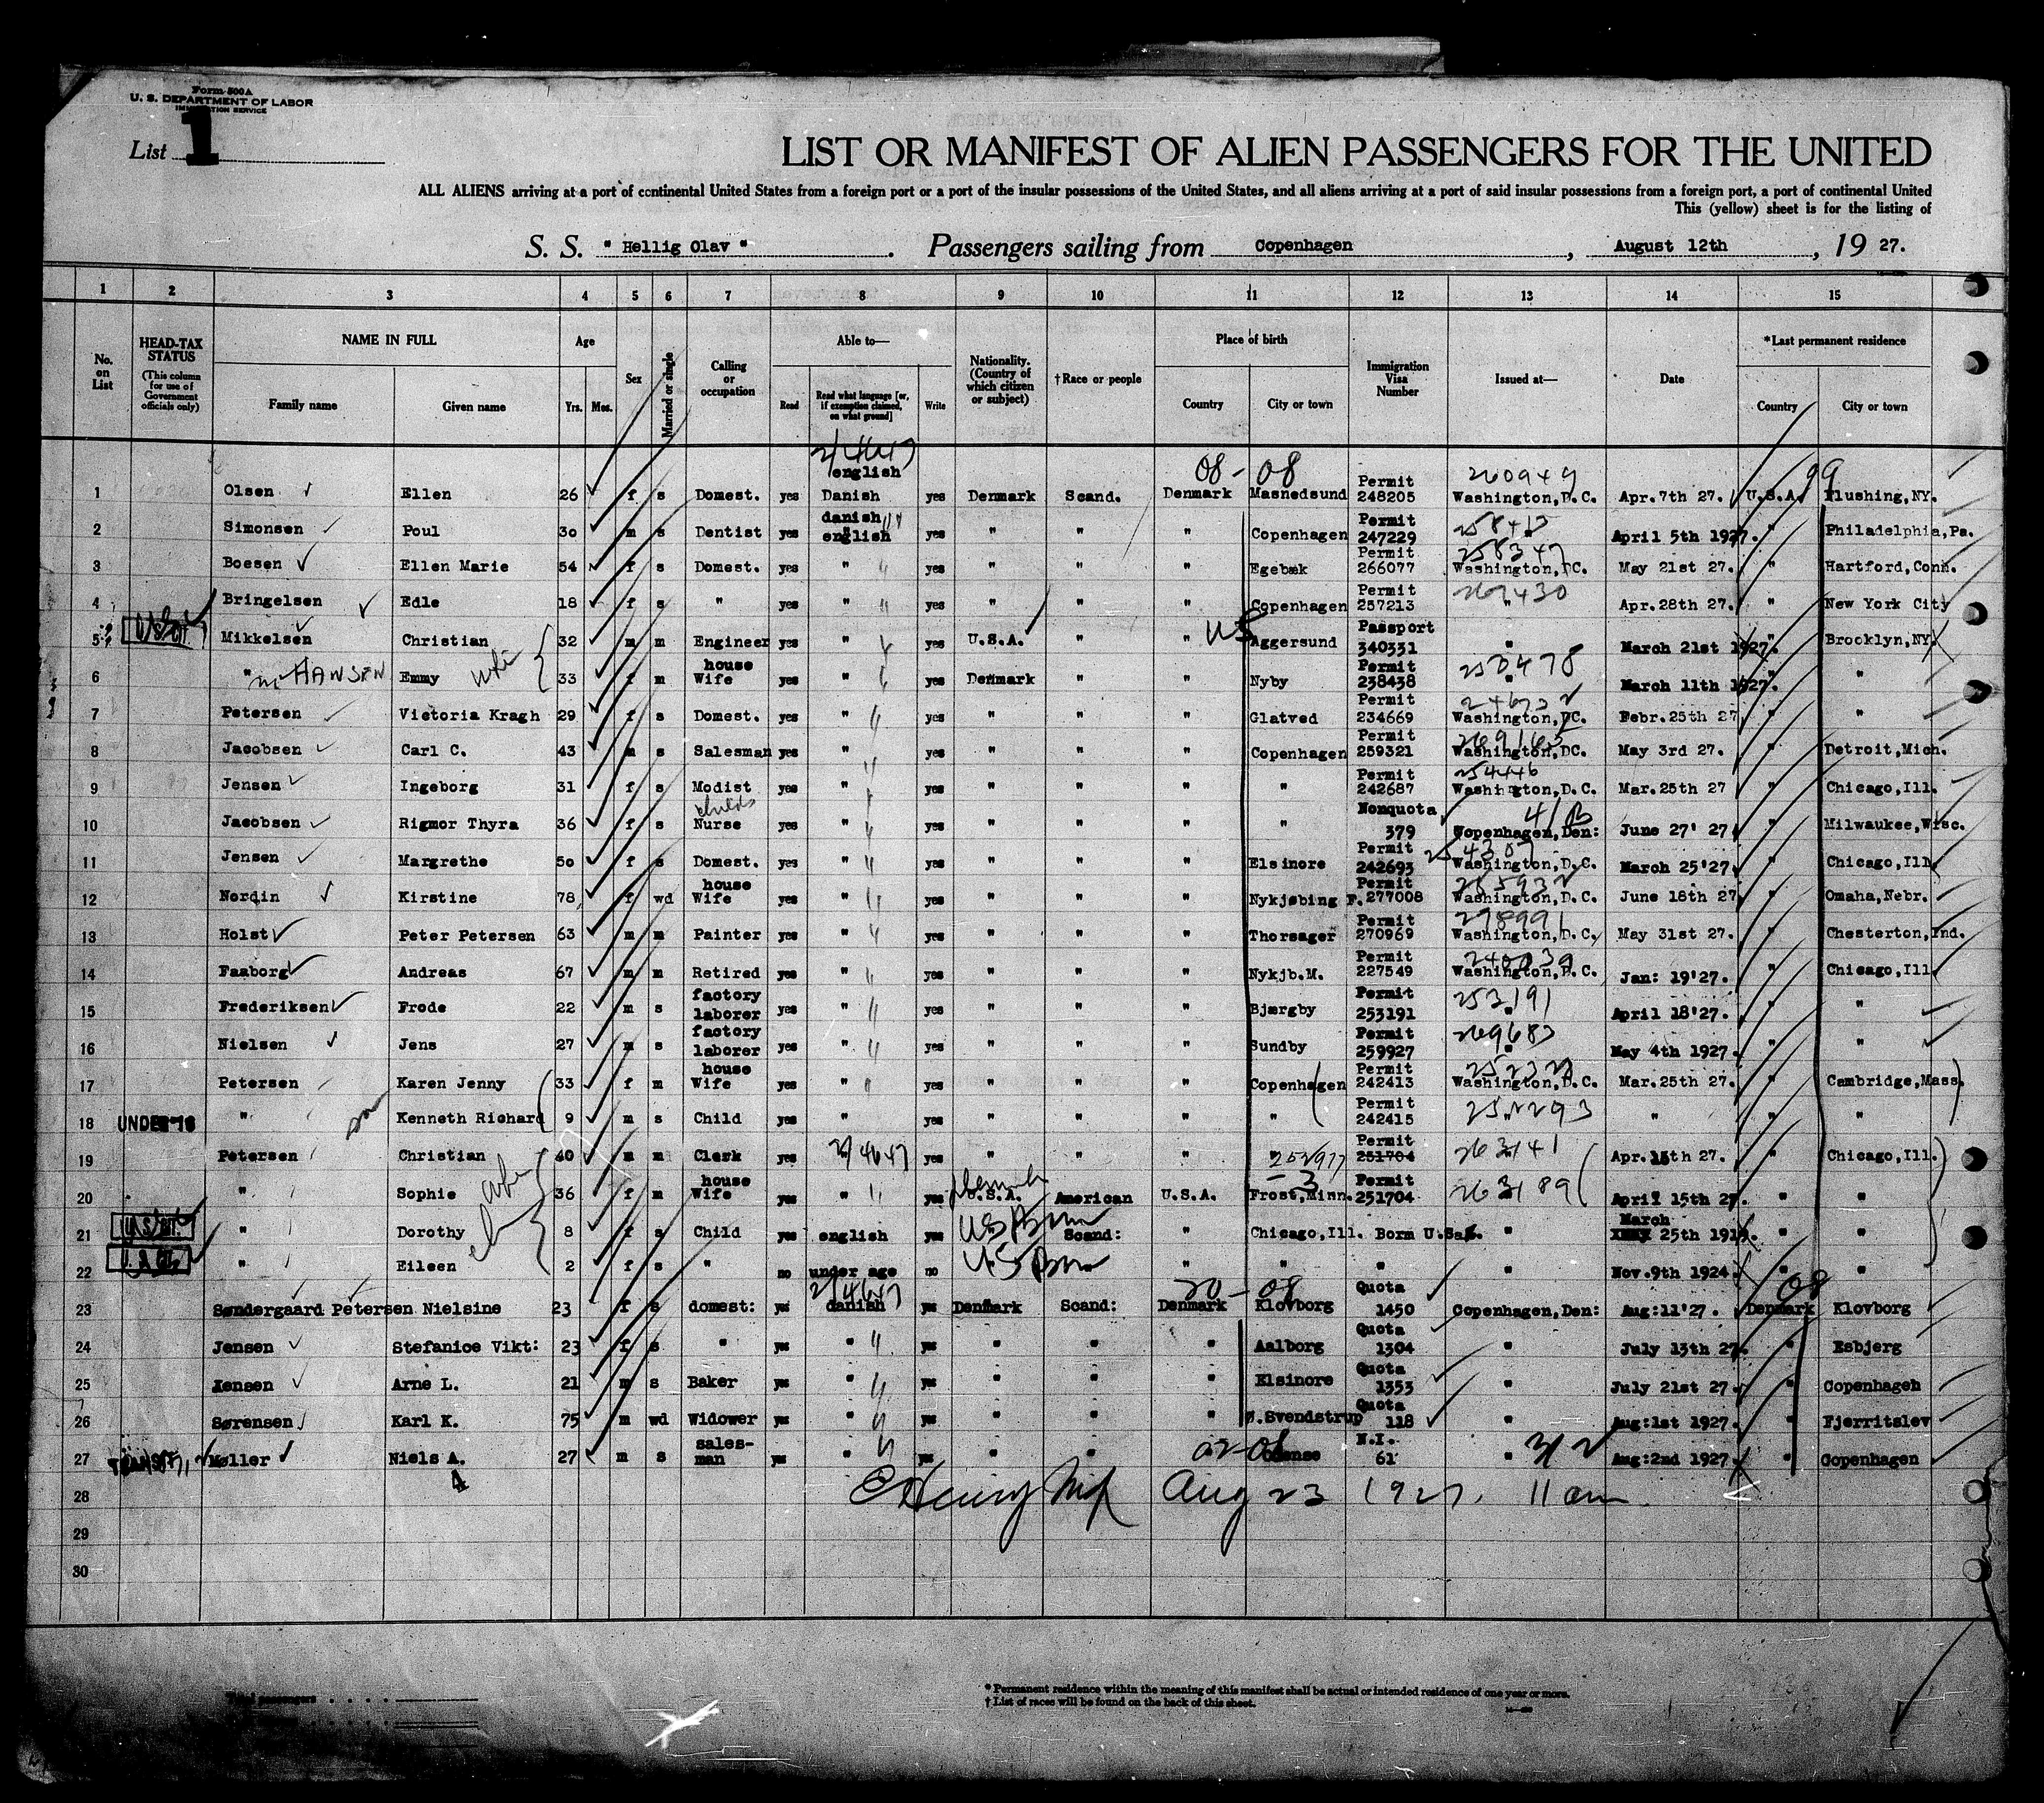 Form 500A
U. S. DEPARTMENT OF LABOR
IMMIGRATION SERVICE
List 1
LIST OR MANIFEST OF ALIEN PASSENGERS FOR THE UNITED
ALL ALIENS arriving at a port of continental United States from a foreign port or a port of the insular possessions of the United States, and all aliens arriving at a port of said insular possessions from a foreign port, a port of continental United
This (yellow) sheet is for the listing of
S. S. " Hellig Olav " . Passengers sailing from Copenhagen , August 12th , 19 27.
1 2 3 4 5 6 7 8 9 10 11 12 13 14 15
No. on List
HEAD-TAX STATUS (This column for use of Government officials only)
NAME IN FULL Family name Given name
Age Yrs. Mos.
Sex
Married or single
Calling or occupation
Able to— Read Read what language [or, if exemption claimed, on what ground] Write
Nationality. (Country of which citizen or subject)
†Race or people
Place of birth Country City or town
Immigration Visa Number
Issued at—
Date
*Last permanent residence Country City or town
08 - 08 260949 99
1 Olsen Ellen 26 f s Domest. yes english Danish yes Denmark Scand. Denmark Masnedsund Permit 248205 Washington,D.C. Apr.7th 27. U.S.A. Flushing,NY.
2 Simonsen Poul 30 m s Dentist yes danish english yes " " " Copenhagen Permit 247229 258415 " April 5th 1927. " Philadelphia,Pa.
3 Boesen Ellen Marie 54 f s Domest. yes " yes " " " Egebæk Permit 266077 258347 Washington,DC. May 21st 27. " Hartford,Conn.
4 Bringelsen Edle 18 f s " yes " yes " " " Copenhagen Permit 257213 267430 " Apr.28th 27. " New York City
5 Mikkelsen Christian 32 m m Engineer yes " yes U.S.A. " " US Aggersund Passport 340331 " March 21st 1927. " Brooklyn,NY.
6 " HANSEN Emmy wife 33 f m house Wife yes " yes Denmark " " Nyby Permit 238438 253478 " March 11th 1927. " "
7 Petersen Victoria Kragh 29 f s Domest. yes " yes " " " Glatved Permit 234669 Washington,DC. Febr.25th 27. " "
8 Jacobsen Carl C. 43 m s Salesman yes " yes " " " Copenhagen Permit 259321 Washington,DC. May 3rd 27. " Detroit,Mich.
9 Jensen Ingeborg 31 f s Modist yes " yes " " " " Permit 242687 254446 Washington,D.C. Mar.25th 27 " Chicago,Ill.
10 Jacobsen Rigmor Thyra 36 f s childs Nurse yes " yes " " " " Nonquota 379 Copenhagen,Den: June 27' 27. " Milwaukee,Wisc.
11 Jensen Margrethe 50 f s Domest. yes " yes " " " Elsinore Permit 242693 254307 Washington,D.C. March 25'27. " Chicago,Ill.
12 Nordin Kirstine 78 f wd house Wife yes " yes " " " Nykjøbing F. Permit 277008 Washington,D.C. June 18th 27. " Omaha,Nebr.
13 Holst Peter Petersen 63 m m Painter yes " yes " " " Thorsager Permit 270969 278991 Washington,D.C. May 31st 27. " Chesterton,Ind.
14 Faaborg Andreas 67 m m Retired yes " yes " " " Nykjb.M. Permit 227549 240039 Washington,D.C. Jan: 19'27. " Chicago,Ill.
15 Frederiksen Frode 22 m s factory laborer yes " yes " " " Bjærgby Permit 253191 253191 " April 18'27. " "
16 Nielsen Jens 27 m s factory laborer yes " yes " " " Sundby Permit 259927 269683 " May 4th 1927. " "
17 Petersen Karen Jenny 33 f m house Wife yes " yes " " " Copenhagen Permit 242413 Washington,D.C. Mar.25th 27. " Cambridge,Mass.
18 UNDER 16 " son Kenneth Richard 9 m s Child yes " yes " " " " Permit 242415 252293 " " "
19 Petersen Christian 40 m m Clerk yes yes " " " " Permit 251704 263141 Apr.15th 27. " Chicago,Ill.
20 " Sophie wife 36 f m house Wife yes " yes U.S.A. American U.S.A. Frost,Minn. Permit 251704 263189 April 15th 27. " "
21 U.S.CIT. " Dorothy 8 f s Child yes english yes US Born Scand: " Chicago,Ill. Born U.Sa. " March 25th 1919. " "
22 " Eileen 2 f s " no under age no US Born " " " " Nov.9th 1924. " "
20 - 08 08
23 Søndergaard Petersen Nielsine 23 f s domest: yes danish yes Denmark Scand: Denmark Klovborg Quota 1450 Copenhagen,Den: Aug:11'27. Denmark Klovborg
24 Jensen Stefanice Vikt: 23 f s " yes " yes " " " Aalborg Quota 1304 " July 13th 27. " Esbjerg
25 Jensen Arne L. 21 m s Baker yes " yes " " " Elsinore Quota 1353 " July 21st 27. " Copenhagen
26 Sørensen Karl K. 75 m wd Widower yes " yes " " " Ø.Svendstrup Quota 118 " Aug:1st 1927. " Fjerritslev
27 TRANSIT Møller Niels A. 27 m s sales-man yes " yes " " " Odense N.I. 61 " 3/2 Aug:2nd 1927. " Copenhagen
4
28 Aug 23 1927. 11 am
29
30
Total passengers
* Permanent residence within the meaning of this manifest shall be actual or intended residence of one year or more.
† List of races will be found on the back of this sheet.